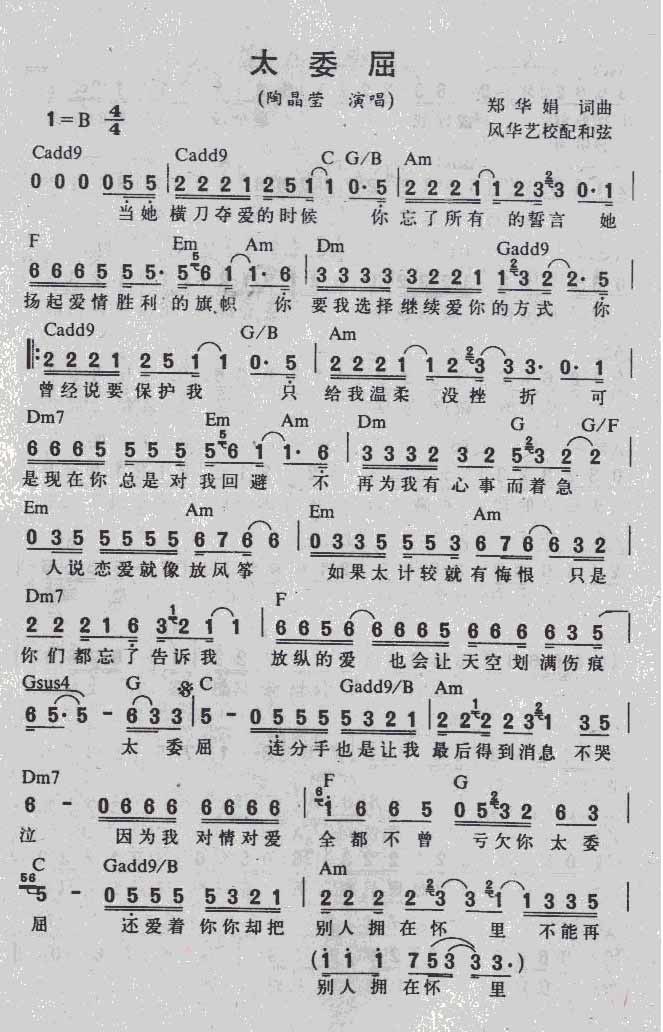 太委屈
(陶晶莹 演唱)
郑华娟 词曲
1=B 4/4
风华艺校配和弦
Cadd9 Cadd9 C G/B Am
0 0 0 0 5 5 | 2 2 2 1 2 5 1 1 0· 5 | 2 2 2 1 1 2 3 2 3 0· 1 |
当她 横刀夺爱的时候 你 忘了所有 的誓言 她
F Em Am Dm Gadd9
6 6 6 5 5 5 5· 5 5 6 1 1· 6 | 3 3 3 3 3 2 2 1 1 2 3 2 2· 5 |
扬起爱情胜利的旗帜 你 要我选择继续爱你的方式 你
Cadd9 G/B Am
2 2 2 1 2 5 1 1 0· 5 | 2 2 2 1 1 2 2 3 3 3· 0· 1 |
曾经说要 保护我 只 给我温柔 没挫折 可
Dm7 Em Am Dm G G/F
6 6 6 5 5 5 5 5 5 6 1 1· 6 | 3 3 3 2 3 2 5 2 3 2 2 |
是现在你 总是对我回避 不 再为我有心事而着急
Em Am Em Am
0 3 5 5 5 5 5 6 7 6 6 | 0 3 3 5 5 5 3 6 7 6 6 3 2 |
人说恋爱就像放风筝 如果太计较就有悔恨 只是
Dm7 F
2 2 2 1 6 3 1 2 1 1 | 6 6 5 6 6 6 6 5 6 6 6 6 3 5 |
你们都忘了告诉我 放纵的爱 也会让天空划满伤痕
Gsus4 G C Gadd9/B Am
6 5· 5 - 6 3 3 | 5 - 0 5 5 5 5 3 2 1 | 2 2 1 2 2 2 3 2 1 3 5 |
太委屈 连分手也是让我 最后得到消息 不哭
Dm7 F G
6 - 0 6 6 6 6 6 6 6 | 6 1 6 6 5 0 5 2 3 2 6 3 |
泣 因为我 对情对爱 全都不曾 亏欠你 太委
C Gadd9/B Am
56 5 - 0 5 5 5 5 3 2 1 | 2 2 2 2 3 3 2 1 1 3 3 5 |
屈 还爱着 你你却把 别人拥在怀里 不能再
(1 1 1 7 5 3 3 3 3·)
别人拥在怀里